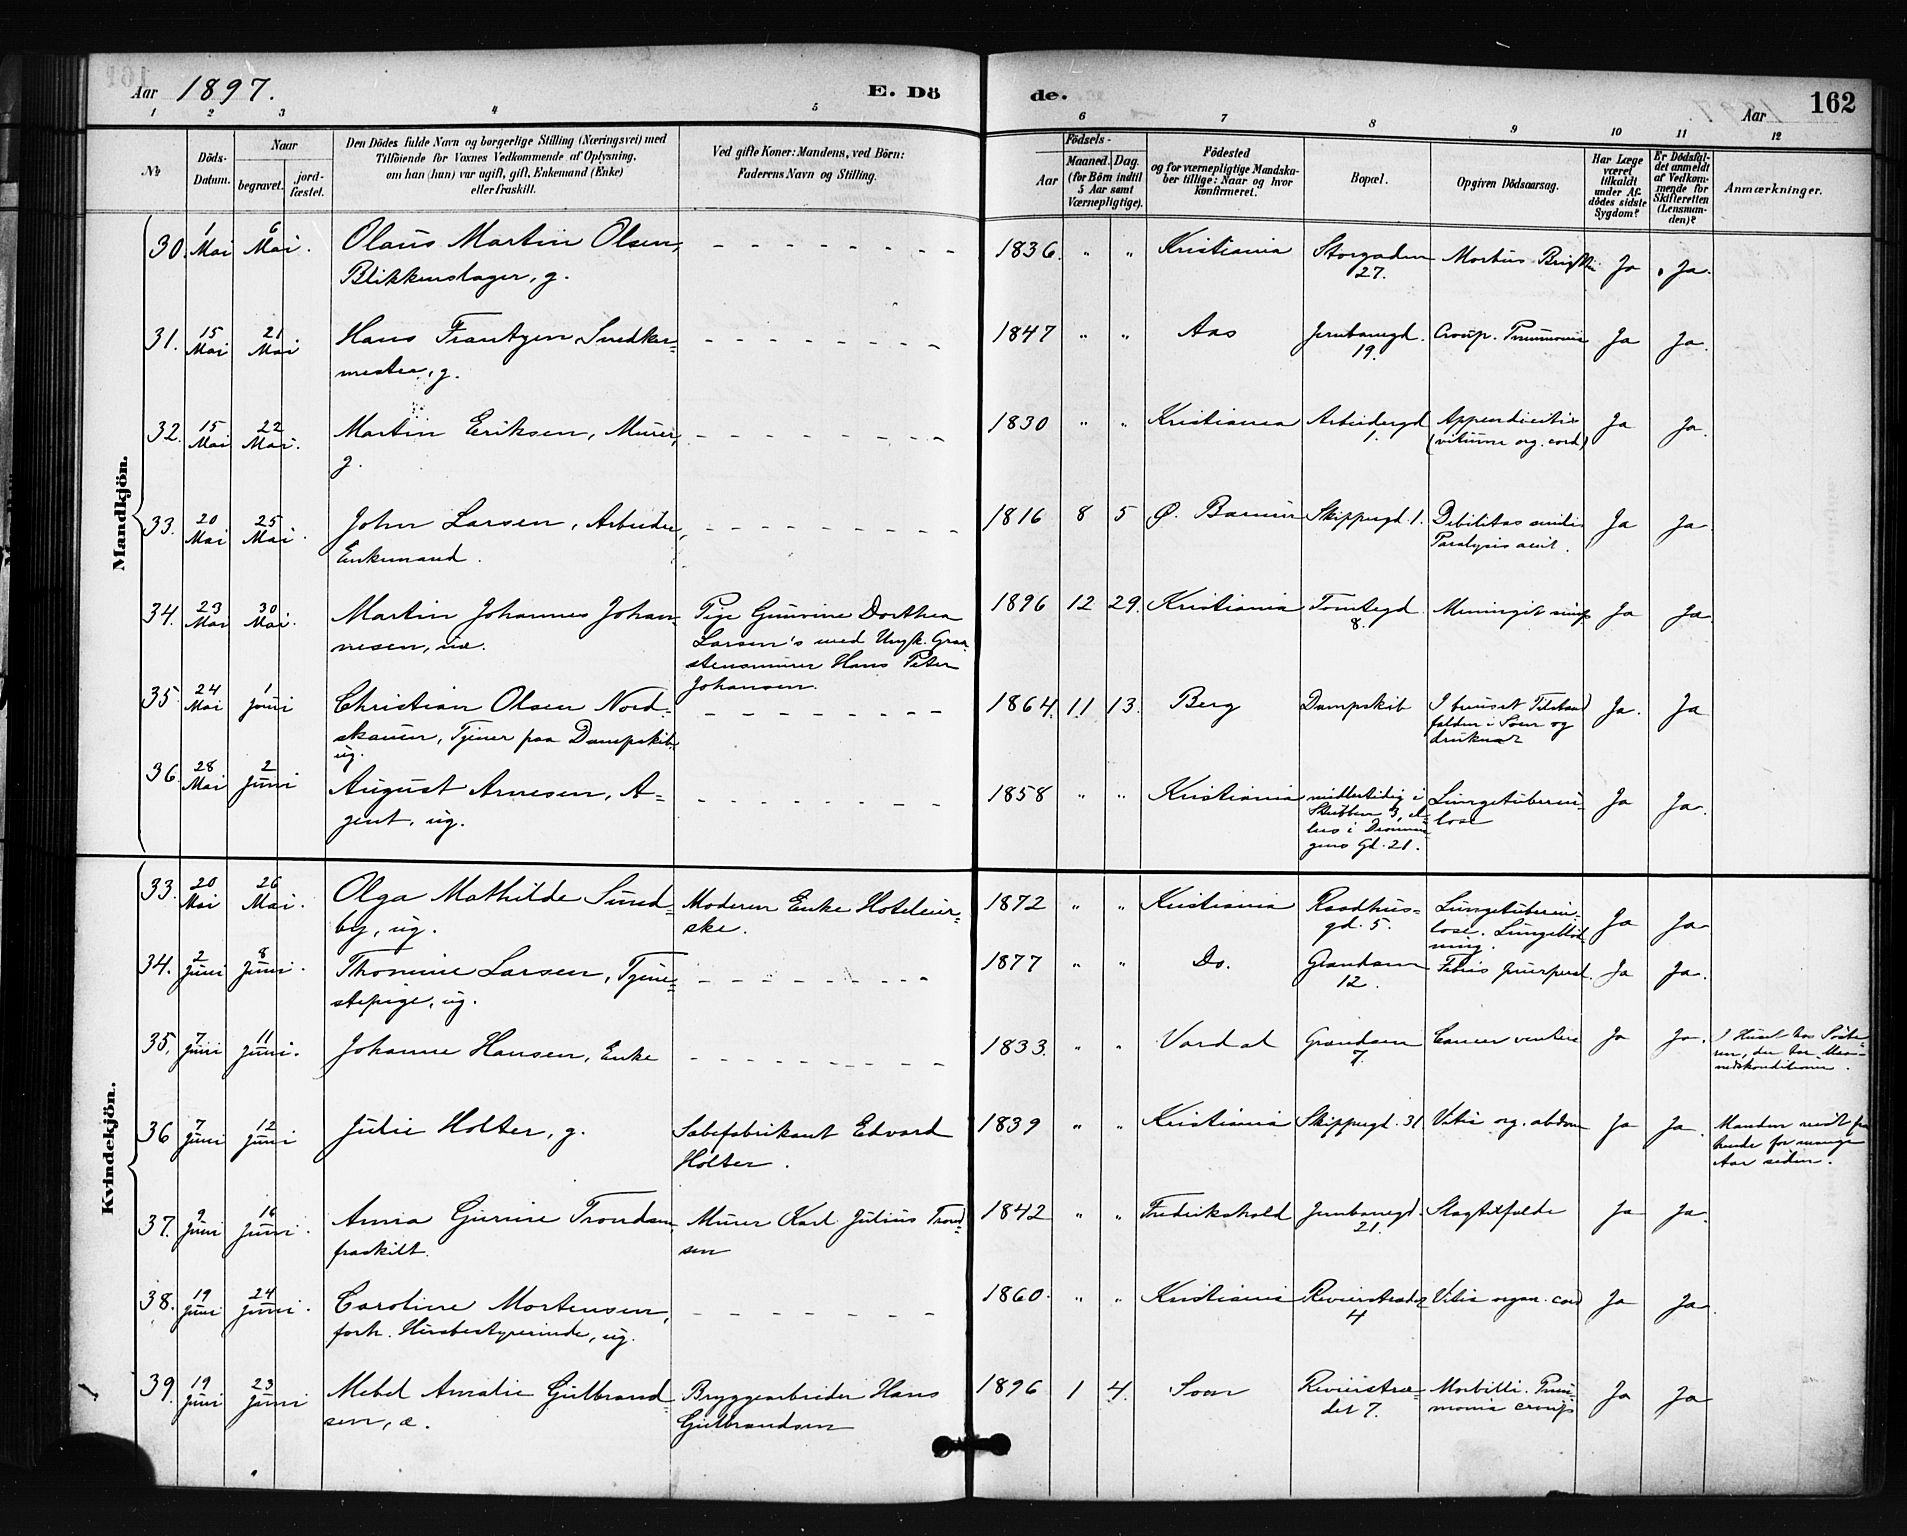 Aar 1897. E. Dö de. Aar 162
1 2 3 4 5 6 7 8 9 10 11 12
№
Döds-Datum.
Naar
begravet.
jord-fæstet.
Den Dödes fulde Navn og borgerlige Stilling (Næringsvei) med
Tilföiende for Voxnes Vedkommende af Oplysning,
om han (hun) var ugift, gift, Enkemand (Enke)
eller fraskilt.
Ved gifte Koner: Mandens, ved Börn:
Faderens Navn og Stilling.
Födsels-
Aar
Maaned. Dag.
(for Börn indtil
5 Aar samt
Værnepligtige).
Födested
og for værnepligtige Mandska-
ber tillige: Naar og hvor
konfirmeret.
Bopæl.
Opgiven Dödsaarsag.
Har Læge
været
tilkaldt
under Af-
dödes sidste
Sygdom?
Er Dödsfal-
det anmeldt
af Vedkom-
mende for
Skifteretten
(Lensman-
den)?
Anmærkninger.
Mandkjön.
30. 1 Mai 6 Mai. Olaus Martin Olsen, 1836. " " Kristiania Storgaden Morbus Brightii Ja Ja.
Blikkenslager, g. 27.
31. 15 Mai 21 Mai Hans Frantzen, Snedker- 1847 " " Aas Jernbanegd. Croup. Pneumonie Ja Ja.
mester, g. 19.
32. 15 Mai 22 Mai. Martin Eriksen, Murer, 1830 " " Kristiania Arbeidergd Appendicitis Ja Ja.
g. 1. (vitium org. cord)
33. 20 Mai 25 Mai. John Larsen, Arbeider, 1816 8 5 Ø. Bærum Skippergd 1. Debilitas senilis Ja Ja.
Enkemand. Paralysis
34. 23 Mai 30 Mai. Martin Johannes Johan- Pige Gunvine Dorthea 1896 12 29. Kristiania Tomtegd. Meningit Ja Ja.
nesen, ue. Larsen's med Ungk. Graa- 8.
stensmurer Hans Peter
Johansen.
35. 24 Mai 1 Juni Christian Olsen Nord- 1864. 11 13. Berg Dampskib I beruset Tilstand Ja. Ja
skauen, Tjener paa Dampskib, falden i Søen og
ug. druknet
36. 28 Mai 2 Juni August Arnesen, A- 1858 " " Kristiania midlertidig i Lungetuberku- Ja Ja.
gent, ug. Stubben 3, el- lose
lers i Dronnin-
gens Gd. 21.
Kvindekjön.
33. 20 Mai 26 Mai. Olga Mathilde Sund- Moderen Enke Hoteleier- 1872 " " Kristiania Raadhus- Lungetuberku- Ja Ja
by, ug. ske. gd. 5. lose. Lungeblød-
ning.
34. 2 Juni 8 Juni. Thomine Larsen, Tjene- 1877 " " Do. Grændsen Febris puerperal. Ja Ja.
stepige, ug. 12.
35. 7 Juni 11 Juni. Johanne Hansen, Enke 1833. " " Vardal Grændsen Cancer ventric Ja Ja. I Huset hos Søste-
7. ren, der har Maa-
nedskonditioner.
36 7 Juni 12 Juni Julie Holter, g. Sæbefabrikant Edvard 1839 " " Kristiania Skippergd. 31 Vitia org. abdom Ja Ja. Manden reist fra
Holter. hende for mange
Aar siden.
37. 9 Juni 16 Juni. Anna Gurine Trondsen Murer Karl Julius Trond- 1842 " " Fredrikshald Jernbanegd. Slagtilfælde Ja Ja.
fraskilt. sen 21.
38. 19 Juni 24 Juni. Caroline Mortensen, 1860. " " Kristiania Revierstrædet Vitia organ. cord Ja Ja.
forh. Husbestyrerinde, ug. 4
39. 19 Juni 23 Juni Mebel Amalie Gulbrand- Bryggearbeider Hans 1896 1 4. Soon Revierstræ- Morbilli. Pneu- Ja Ja
sen, æ. Gulbrandsen det 7. monia croup